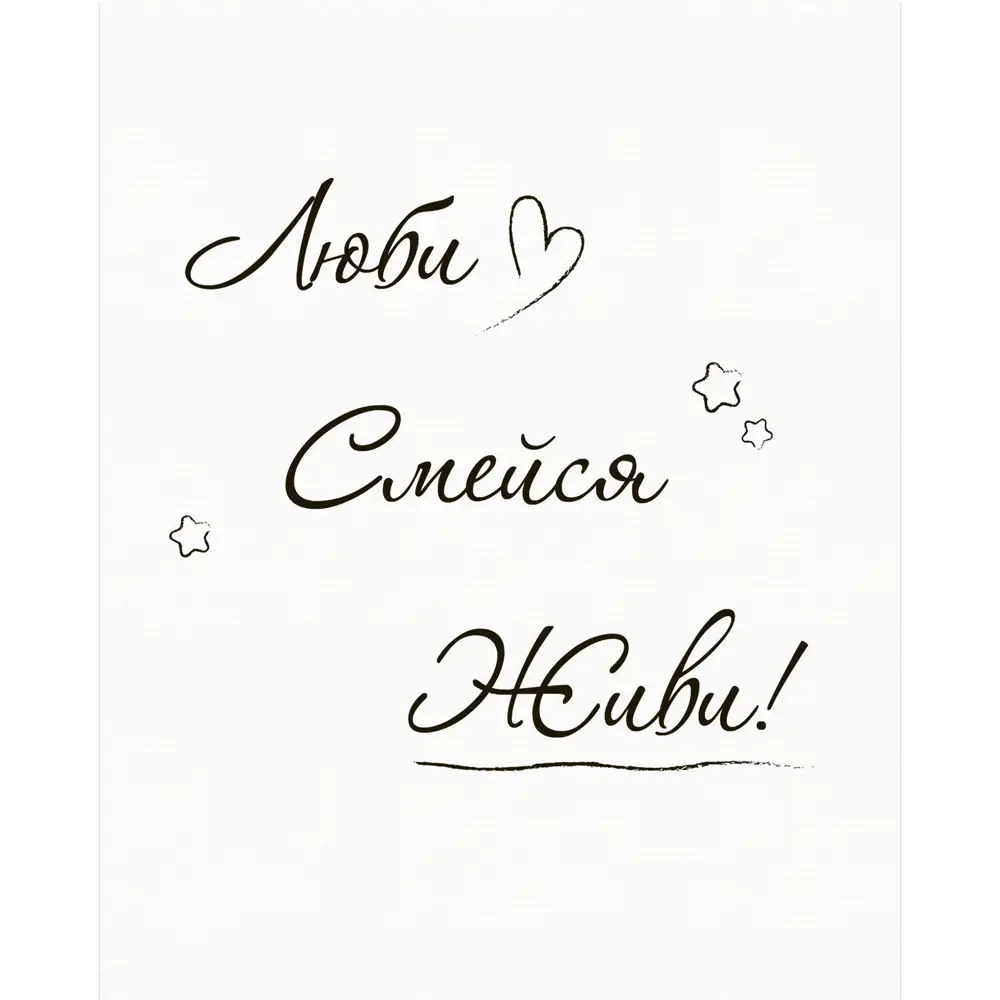 Люби
Смейся
Живи!